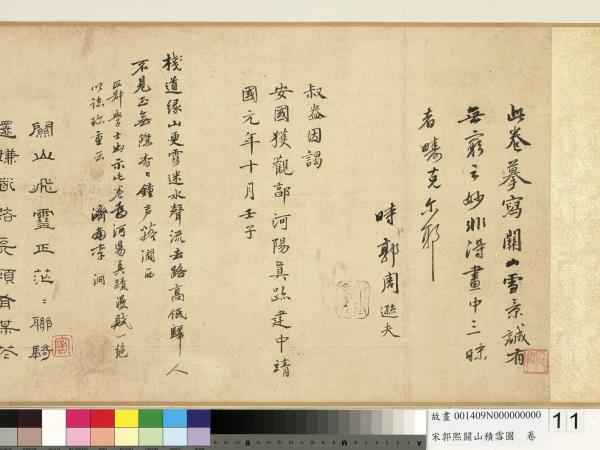 此卷摹寫關山雪景誠有
無窮之妙非得畫中三昧
者疇克尔耶
時郭周遜夫
叔益因謁
安國獲觀郭河陽真跡建中靖
國元年十月壬子
棧道緣山更雪迷水聲流去路高低歸人
不見正無隱杳〻鐘声隔澗西
學士出示此卷為河陽真蹟漫賦一絕
以誌珍重云 濟南李泂
關山飛雪正茫〻聯騎
故畫 001409N000000000
宋郭熙關山積雪圖 卷
11